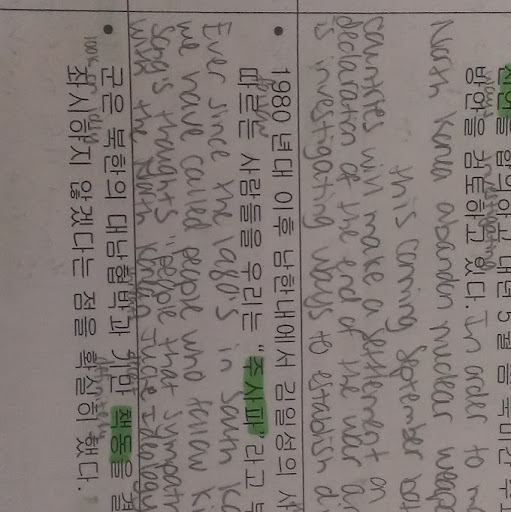 선언을 합의하고 내년 5월 중 북미간 수교
ways investigating
방안을 검토하고 있다. In order to m
North Korea abandon nuclear weapo
this coming September bot
countries will make a settlement on
declaration of the end of the war an
is investigating ways to establish d
• 1980 년대 이후 남한내에서 김일성의 사
follow
따르는 사람들을 우리는 "주사파"라고 부
Ever since the 1980's in South Ko
we have called people who follow Ki
Song's thoughts "people that sympat
with the North Korean Juche Ideology
• 군은 북한의 대남협박과 기만 책동을 결
좌시하지 않겠다는 점을 확실히 했다.